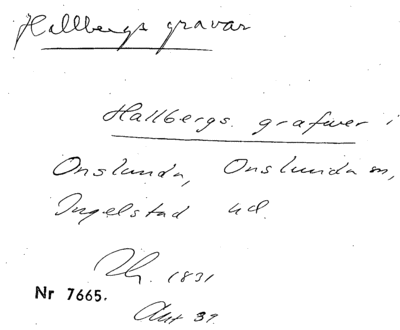 Hallbergs gravar
Hallbergs. grafwer i
Onslunda, Onslunda sn,
Ingelstad hd.
1831
Nr 7665.
Akt 39.